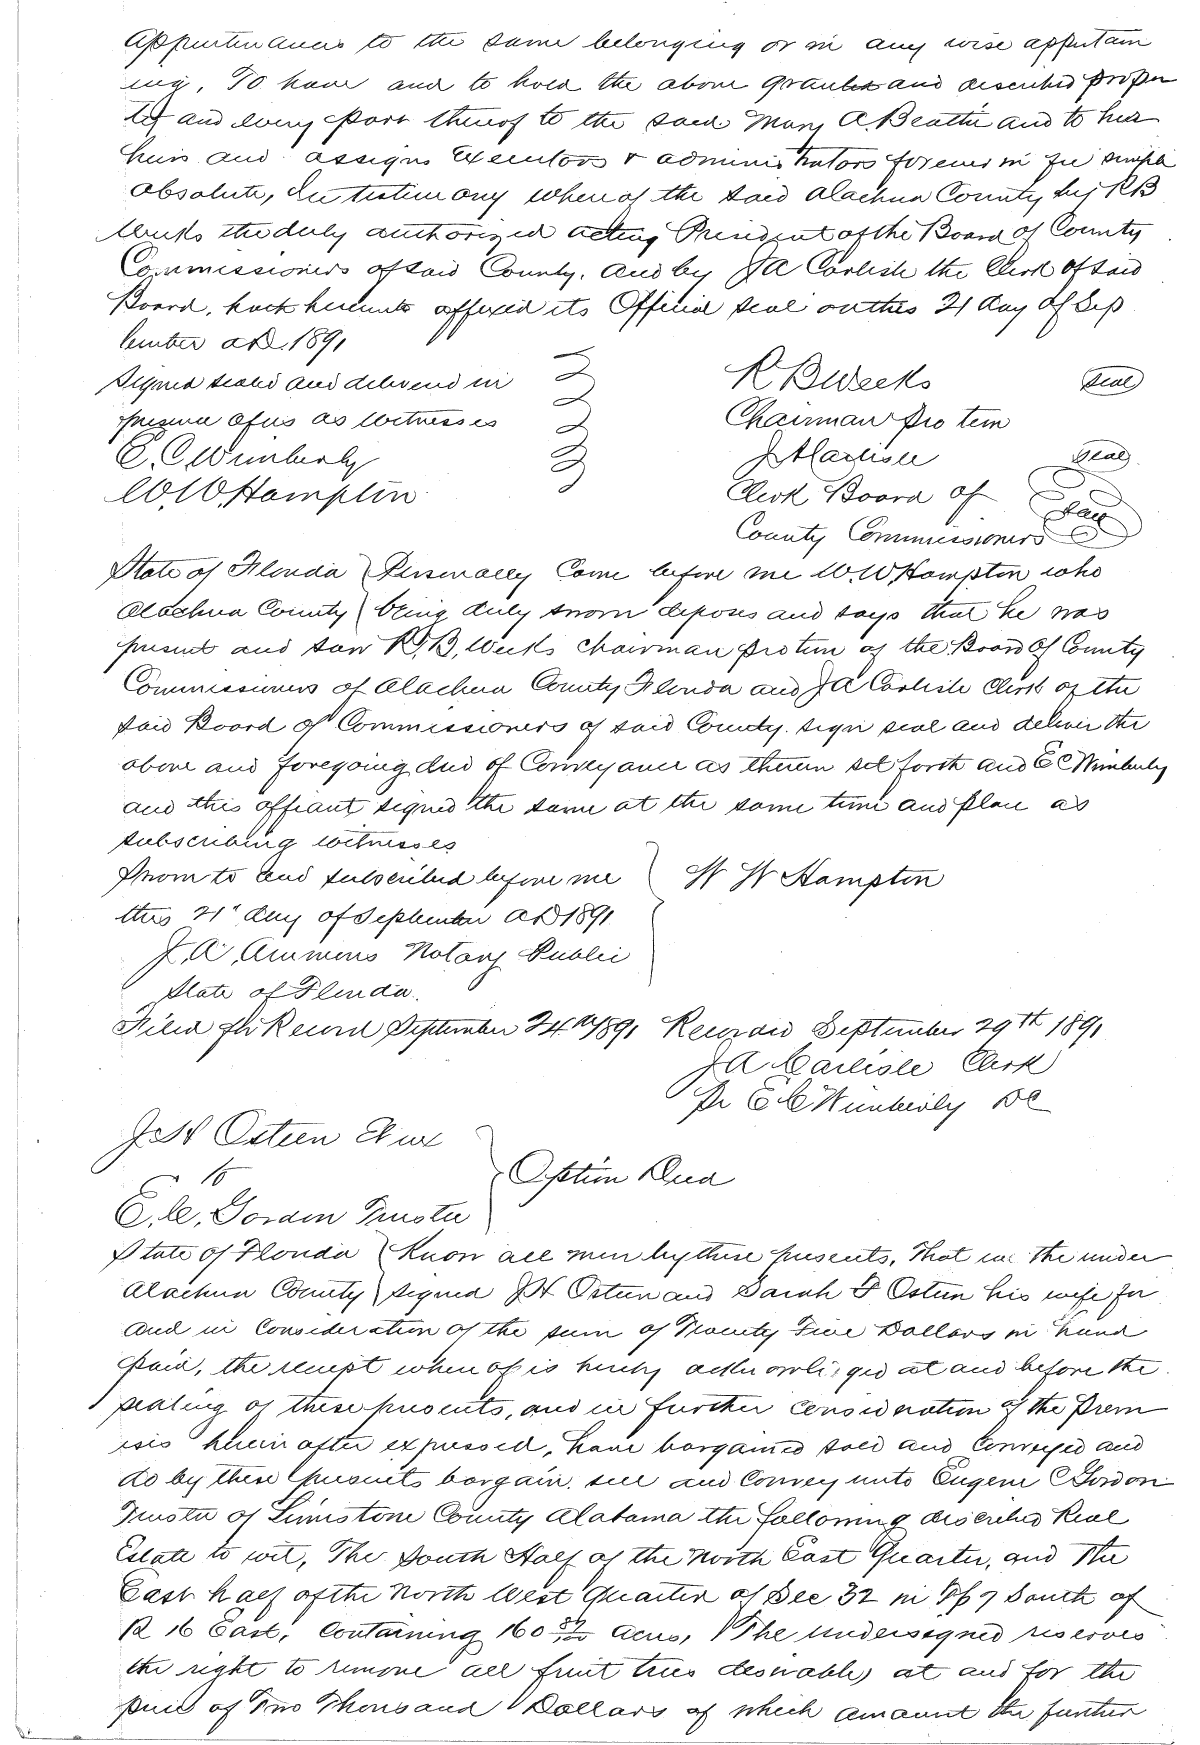 appurtenances to the same belonging or in any wise appertain
ing, To have and to hold the above granted and described proper
ty and every part thereof to the said Mary A. Beattie and to her
heirs and assigns Executors & administrators forever in fee simple
absolute, In testimony whereof the said Alachua County by R B
Weeks the duly authorized acting President of the Board of County
Commissioners of said County, and by J A Carlisle the Clerk of said
Board, hath hereunto affixed its Official seal on this 21 day of Sep
tember A.D. 1891
Signed sealed and delivered in R B Weeks Seal
presence of us as witnesses Chairman pro tem
E. C. Wimberly J A Carlisle Seal
W. W. Hampton Clerk Board of Seal
County Commissioners
State of Florida Personally Came before me W. W Hampton who
Alachua County being duly sworn deposes and says that he was
present and saw R. B. Weeks Chairman protem of the Board of County
Commissioners of Alachua County Florida and J A Carlisle Clerk of the
said Board of Commissioners of said County. sign seal and deliver the
above and foregoing deed of Conveyance as therein set forth and E C Wimberly
and this affiant signed the same at the same time and place as
subscribing witnesses
Sworn to and subscribed before me W W Hampton
this 21st day of September AD 1891
J. A. Ammons Notary Public
State of Florida.
Filed for Record September 24th 1891 Recorded September 29th 1891
J A Carlisle Clerk
Pr E C Wimberly DC
J H Osteen Et ux
to Option Deed
E. C. Gordon Trustee
State of Florida Know all men by these presents, That we the under
Alachua County signed J H Osteen and Sarah F Osteen his wife for
and in Consideration of the sum of Twenty Five Dollars in hand
paid, the receipt whereof is hereby acknowledged at and before the
sealing of these presents, and in further consideration of the Prem
ises herein after expressed, have bargained sold and Conveyed and
do by these presents bargain. sell and Convey unto Eugene C Gordon
Trustee of Limestone County Alabama the following described Real
Estate to wit, The South Half of the North East Quarter, and The
East half of the North West Quarter of Sec 32 in Tp 7 South of
R 16 East, Containing 160 acres, The undersigned reserves
the right to remove all fruit trees desirable, at and for the
price of Two Thousand Dollars of which amount the further